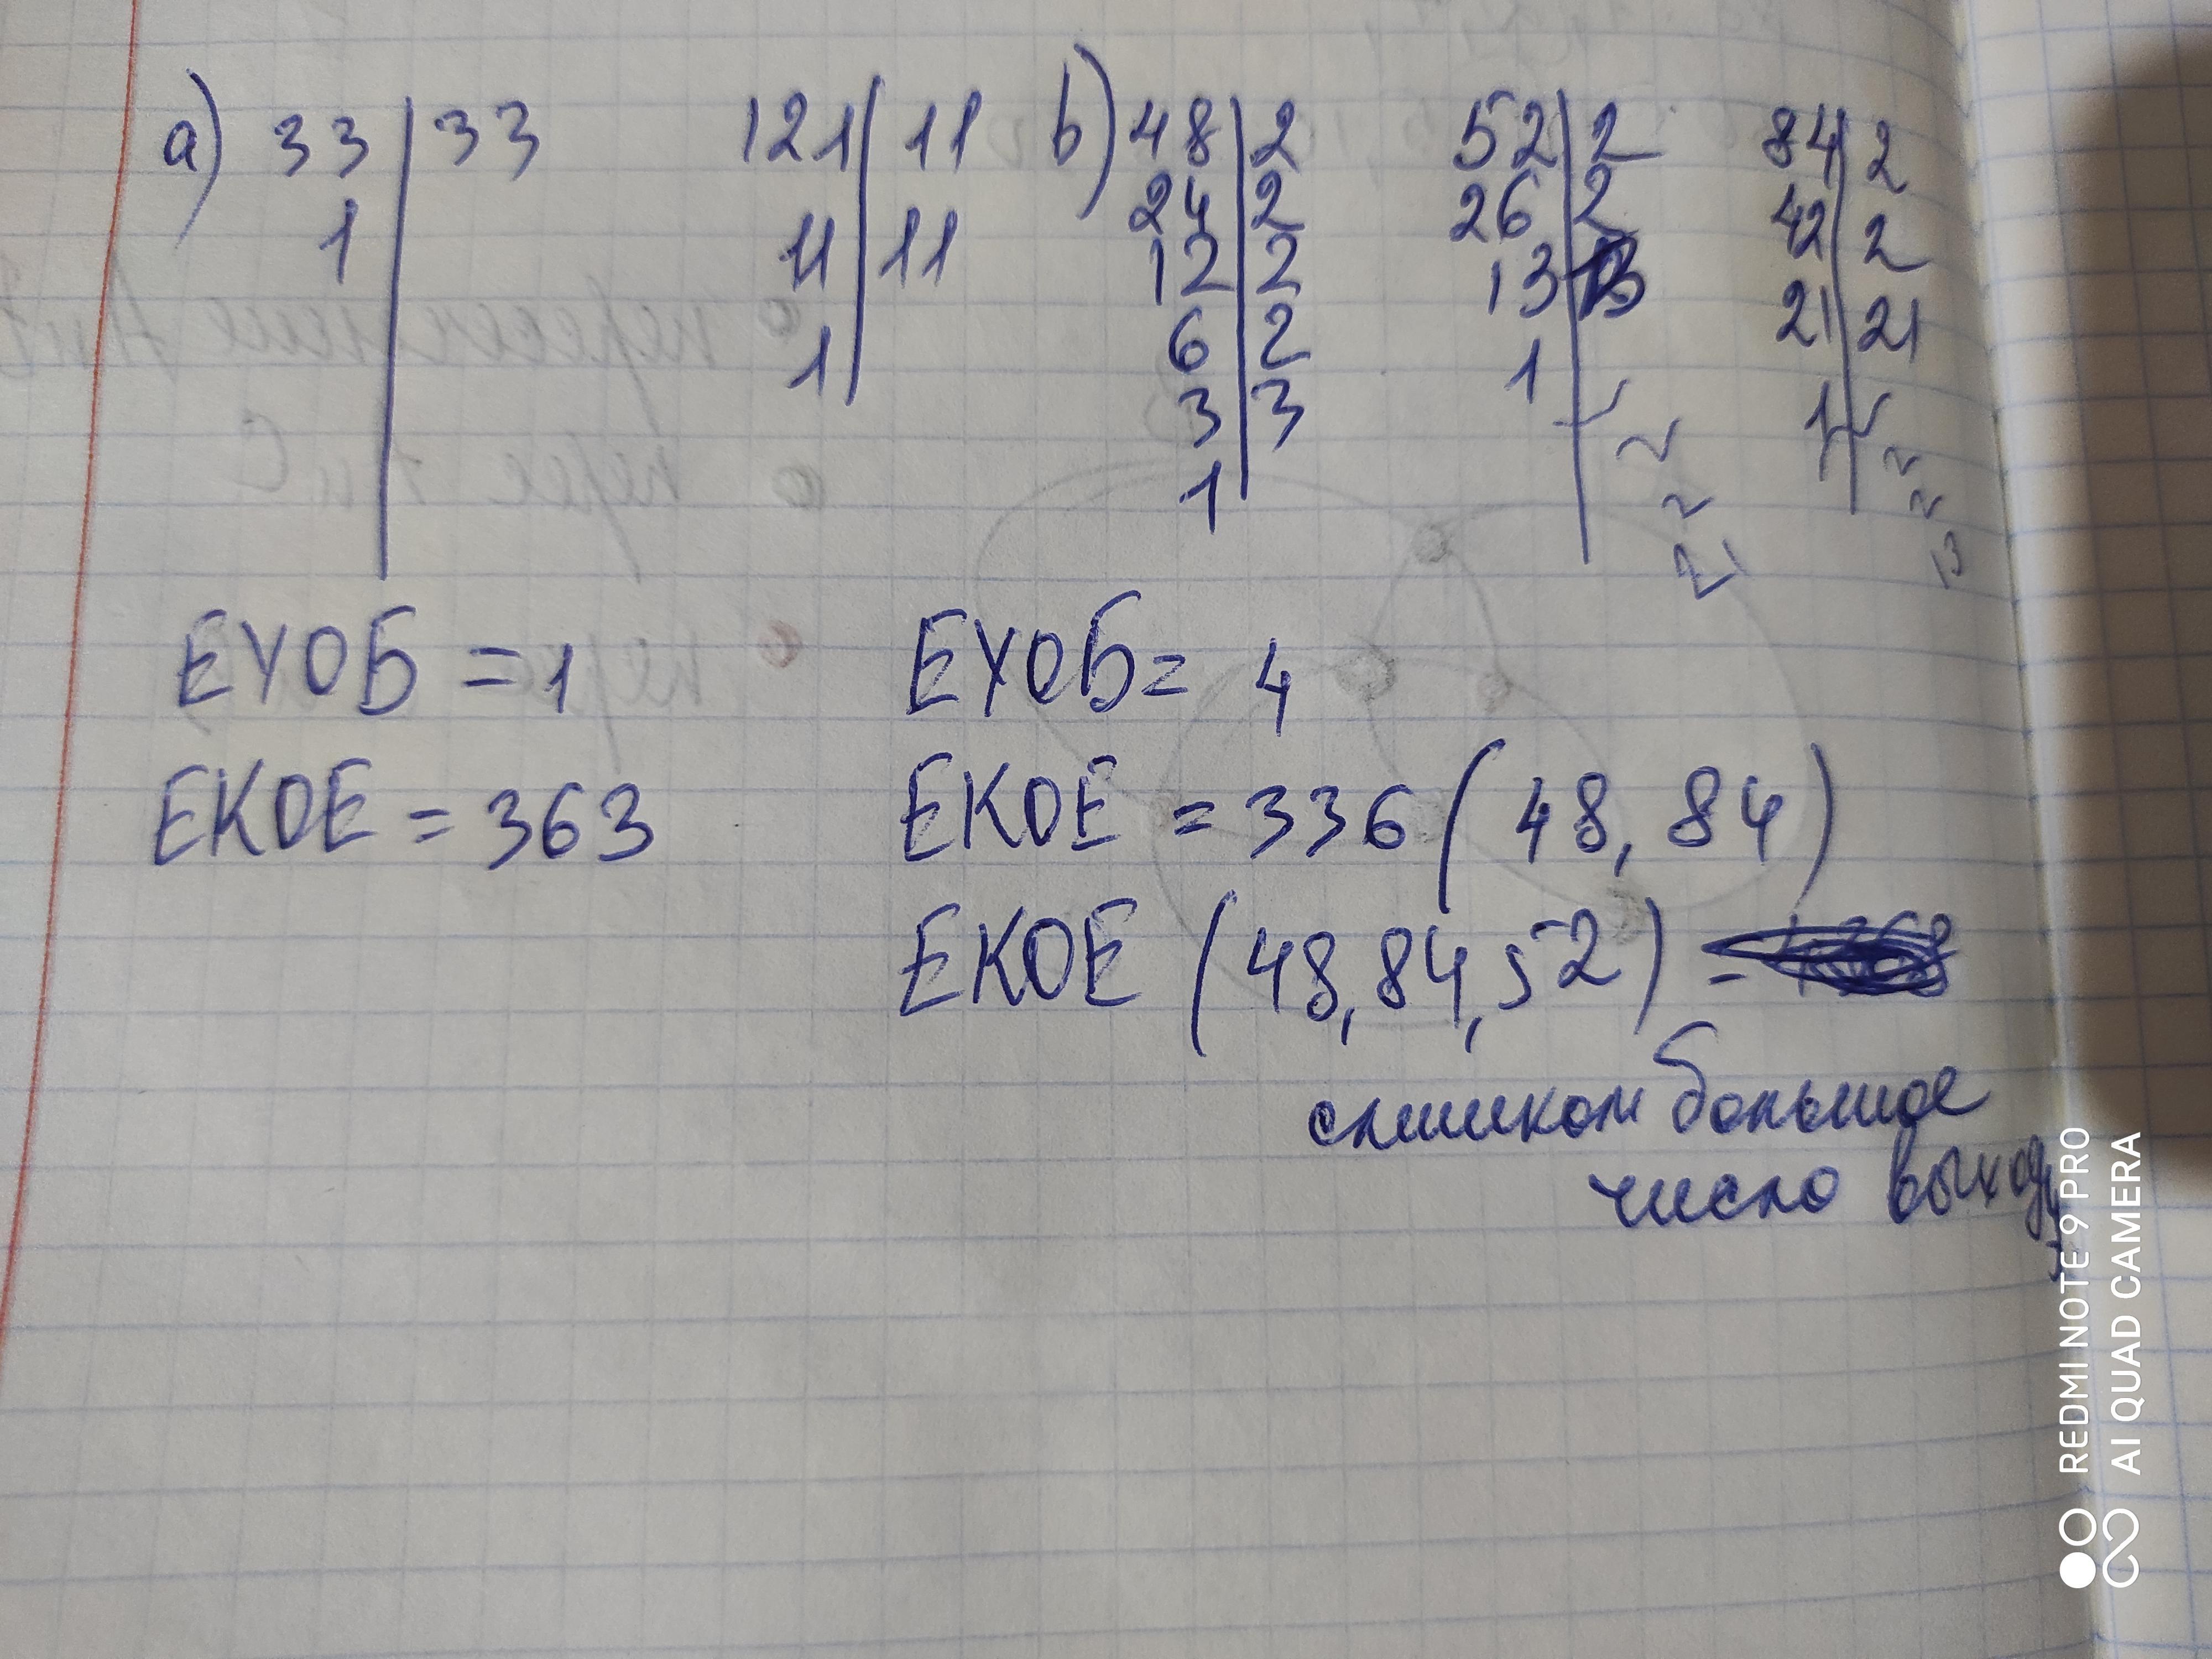 a) 33 | 33
1
121 | 11
11 | 11
1
b) 48 | 2
24 | 2
12 | 2
6 | 2
3 | 3
1
52 | 2
26 | 2
13 | 13
1
2
2
21
84 | 2
42 | 2
21 | 21
1
2
2
13
ЕҮОБ = 1
ЕКОЕ = 363
ЕҮОБ = 4
ЕКОЕ = 336 (48, 84)
ЕКОЕ (48, 84, 52) =
слишком большое
число выходит
REDMI NOTE 9 PRO
AI QUAD CAMERA